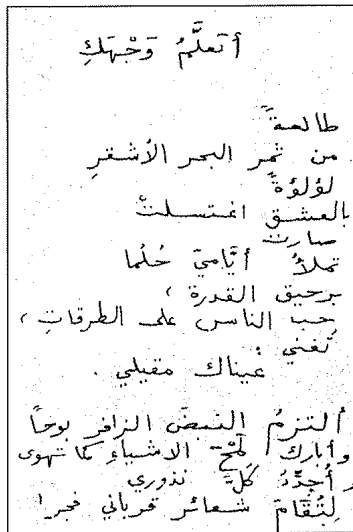 أتعلَّمُ وَجْهَكِ
طالعةً
من ثمر البحر الأشقرِ
لؤلؤةً
بالعشق اغتسلتْ
صارت
تملأُ أيَّاميَ حُلُما
برحيق القدرة ،
حِب الناس على الطرقاتِ ،
تغني
عيناك مقيلي .
ألتزمُ النبضَ الزافر بوحاً
وأبارك الأشياءِ كما تهوى
أُجدِّدُ كلَّ نذوري
لِتُقَامَ شعائر قرباني فجرا